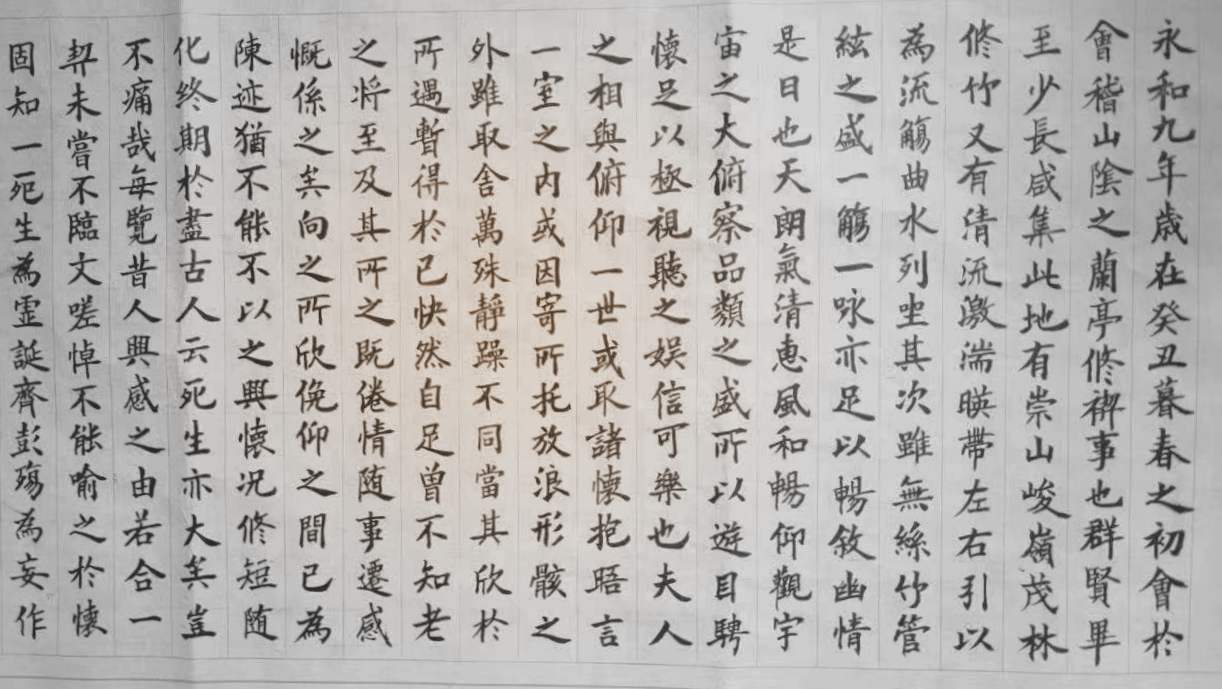 永和九年歲在癸丑暮春之初會於
會稽山陰之蘭亭修禊事也群賢畢
至少長咸集此地有崇山峻嶺茂林
修竹又有清流激湍暎帶左右引以
為流觴曲水列坐其次雖無絲竹管
絃之盛一觴一咏亦足以暢敘幽情
是日也天朗氣清惠風和暢仰觀宇
宙之大俯察品類之盛所以遊目騁
懷足以極視聽之娛信可樂也夫人
之相與俯仰一世或取諸懷抱晤言
一室之內或因寄所托放浪形骸之
外雖取舍萬殊靜躁不同當其欣於
所遇暫得於己快然自足曾不知老
之將至及其所之既倦情随事遷感
慨係之矣向之所欣俛仰之間已為
陳迹猶不能不以之興懷况修短随
化終期於盡古人云死生亦大矣豈
不痛哉每覽昔人興感之由若合一
契未嘗不臨文嗟悼不能喻之於懷
固知一死生為虛誕齊彭殤為妄作